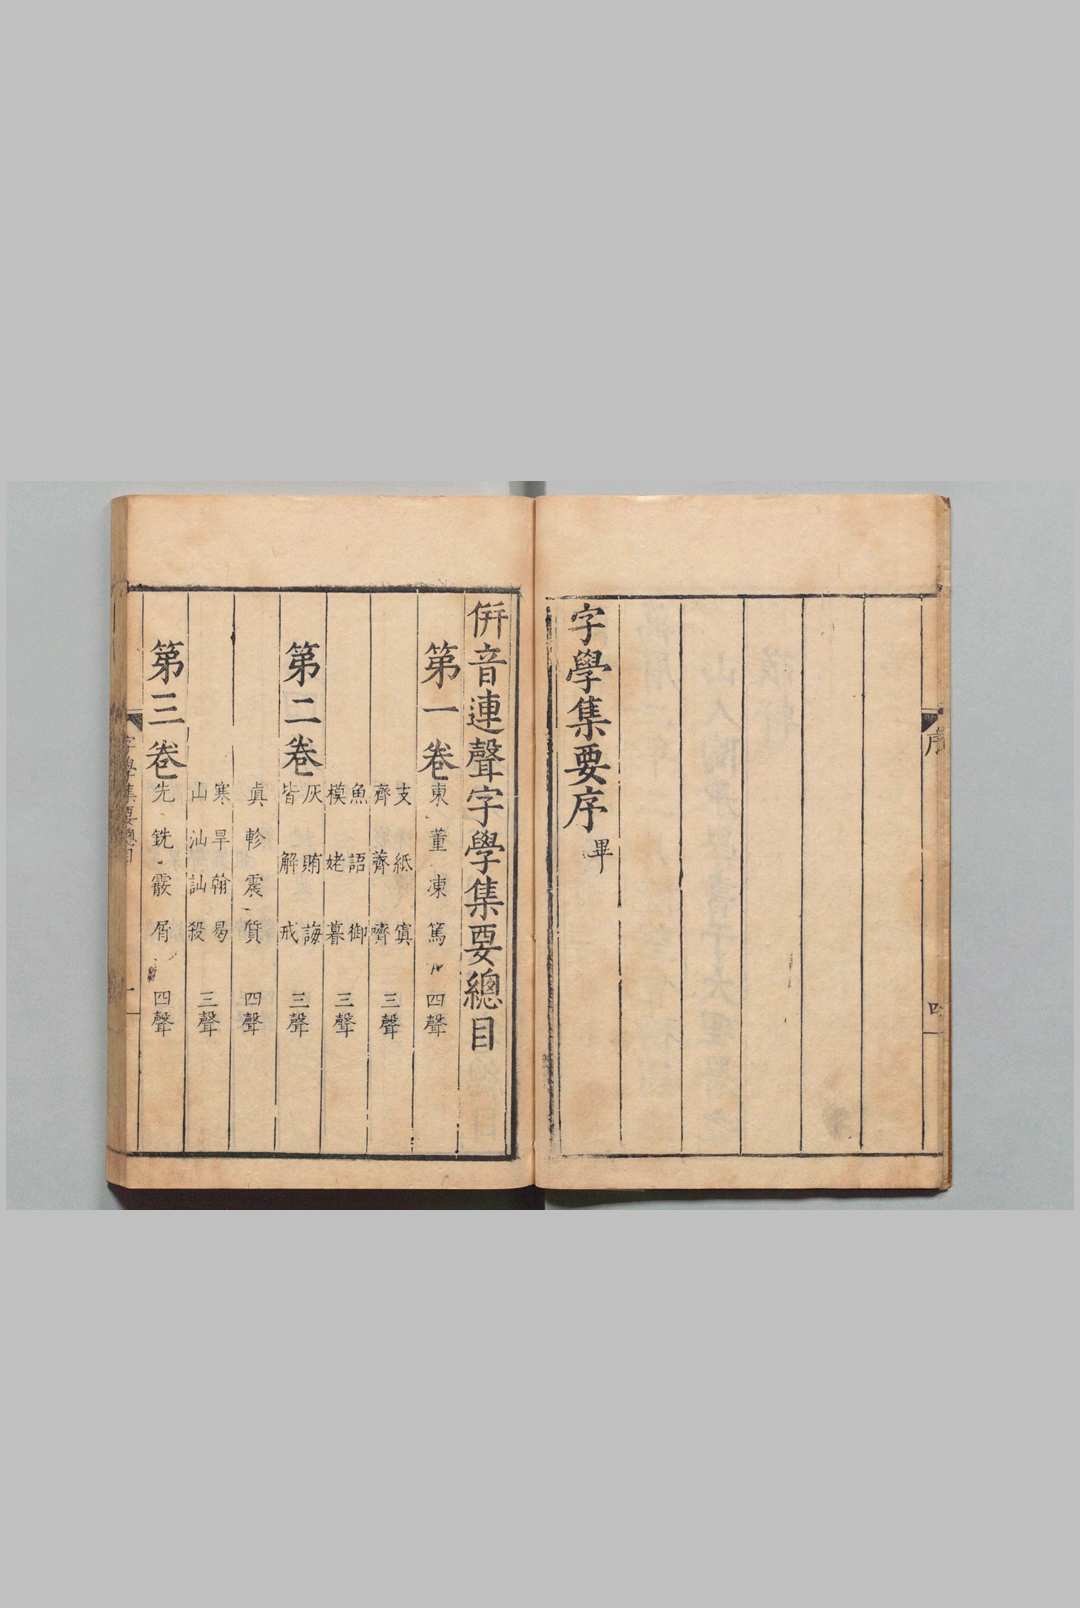 字學集要序畢
序
併音連聲字學集要總目
第一卷
東董凍篤 四聲
支紙寘
齊薺霽 三聲
魚語御
模姥暮 三聲
第二卷
灰賄誨
皆解戒 三聲
眞軫震質 四聲
寒旱翰曷
山汕訕殺 三聲
第三卷
先銑霰屑 四聲
字學集要總目
一